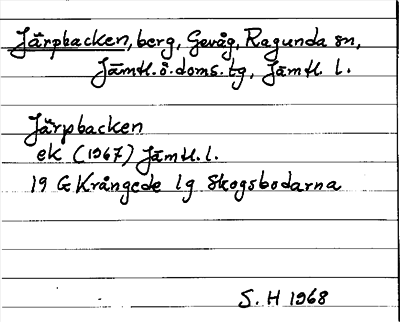 Järpbacken, berg, Gevåg, Ragunda sn,
Jämtl. ö. doms. tg, Jämtl. l.
Järpbacken
ek (1967) Jämtl. l.
19 G Krångede lg Skogsbodarna
S. H 1968